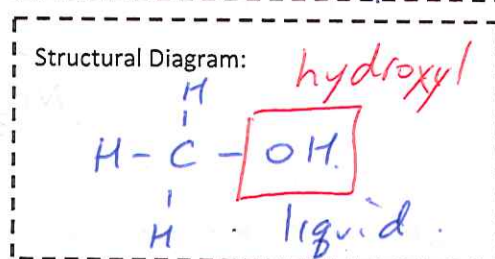 Structural Diagram:
hydroxyl
H
H - C - OH.
H
liquid.